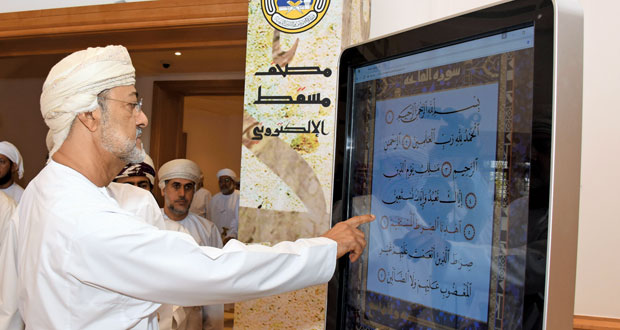 مصحف
مسقط
الإلكتروني
سورة الفاتحة
بِسْمِ اللَّهِ الرَّحْمَٰنِ الرَّحِيمِ ١
الْحَمْدُ لِلَّهِ رَبِّ الْعَٰلَمِينَ ٢ الرَّحْمَٰنِ
الرَّحِيمِ ٣ مَٰلِكِ يَوْمِ الدِّينِ
٤ إِيَّاكَ نَعْبُدُ وَإِيَّاكَ نَسْتَعِينُ
٥ اهْدِنَا الصِّرَٰطَ الْمُسْتَقِيمَ ٦
صِرَٰطَ الَّذِينَ أَنْعَمْتَ عَلَيْهِمْ غَيْرِ
الْمَغْضُوبِ عَلَيْهِمْ وَلَا الضَّالِّينَ ٧